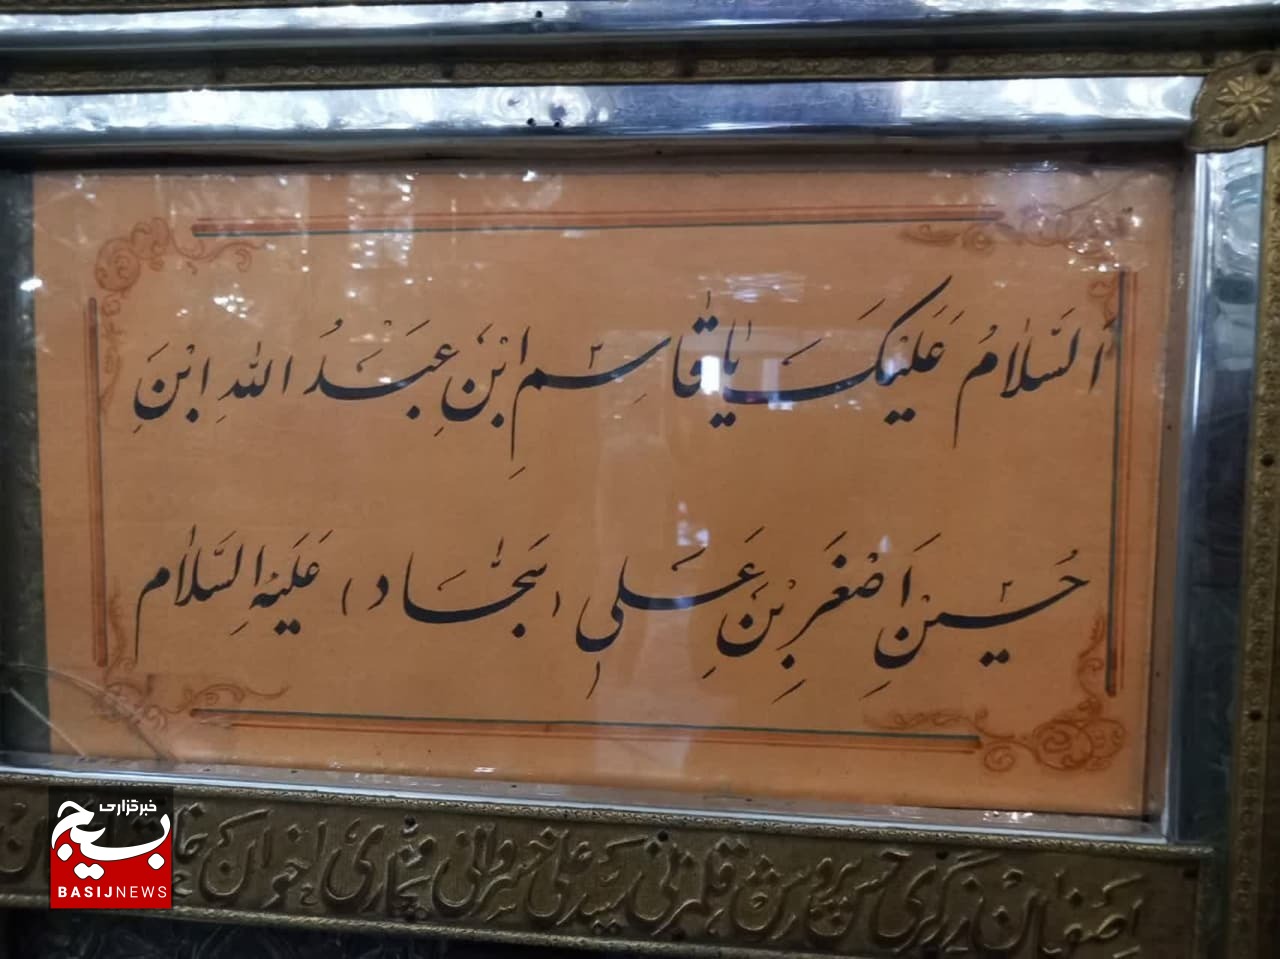 اَلسَّلامُ عَلَیْکَ یٰا قاسِمِ ابْنِ عَبْدُ اللهِ ابْنِ
حُسَیْنِ اَصْغَرِ بْنِ عَلی (سَجّاد) عَلَیْهِ السَّلام
اصفهان زرگری حسن پرورش قلمزنی سید علی خسروانی نجاری اخوان
خبرگزاری
بسیج
BASIJNEWS